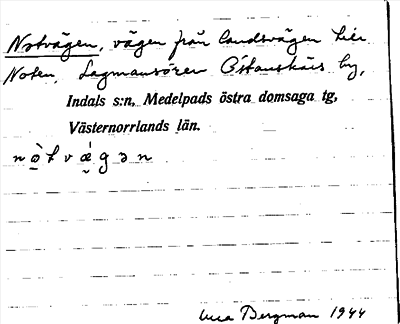 Notvägen, vägen från landsvägen till
Noten, Lagmansören Östanskärs by,
Indals s:n, Medelpads östra domsaga tg,
Västernorrlands län.
nò̱tvá̰gən
Bergman 1944